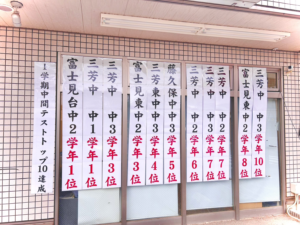 1学期中間テストトップ10達成
富士見台中2学年1位
三芳中1学年1位
三芳中3学年3位
富士見東中2学年3位
三芳東中3学年4位
藤久保中3学年5位
三芳中2学年6位
三芳中3学年7位
三芳中2学年7位
富士見東中2学年8位
三芳中3学年10位